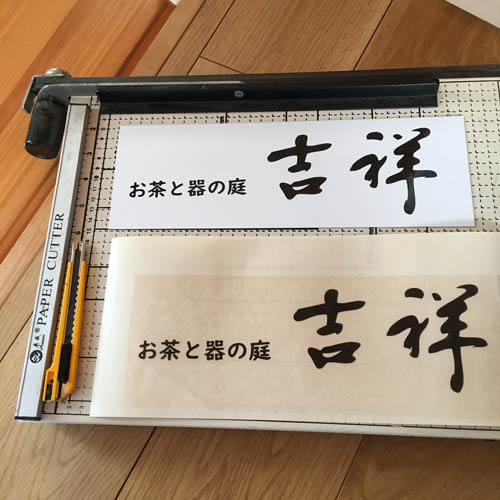 お茶と器の庭 吉祥
お茶と器の庭 吉祥
PAPER CUTTER